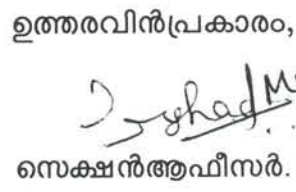 ഉത്തരവിൻപ്രകാരം,
സെക്ഷൻആഫീസർ.